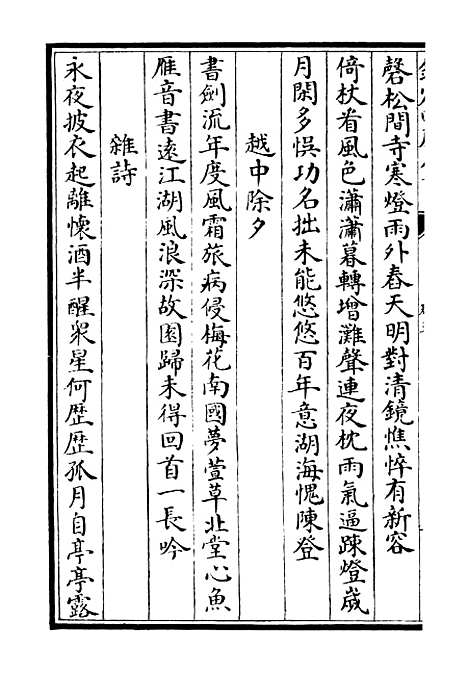 磬松間寺寒燈雨外舂天明對清鏡憔悴有新容
倚杖看風色瀟瀟暮轉增灘聲連夜枕雨氣逼踈燈歲
月閑多悞功名拙未能悠悠百年意湖海愧陳登
越中除夕
書劍流年度風霜旅病侵梅花南國夢萱草北堂心魚
雁音書遠江湖風浪深故園歸未得回首一長吟
雜詩
永夜披衣起離懷酒半醒衆星何歷歷孤月自亭亭露